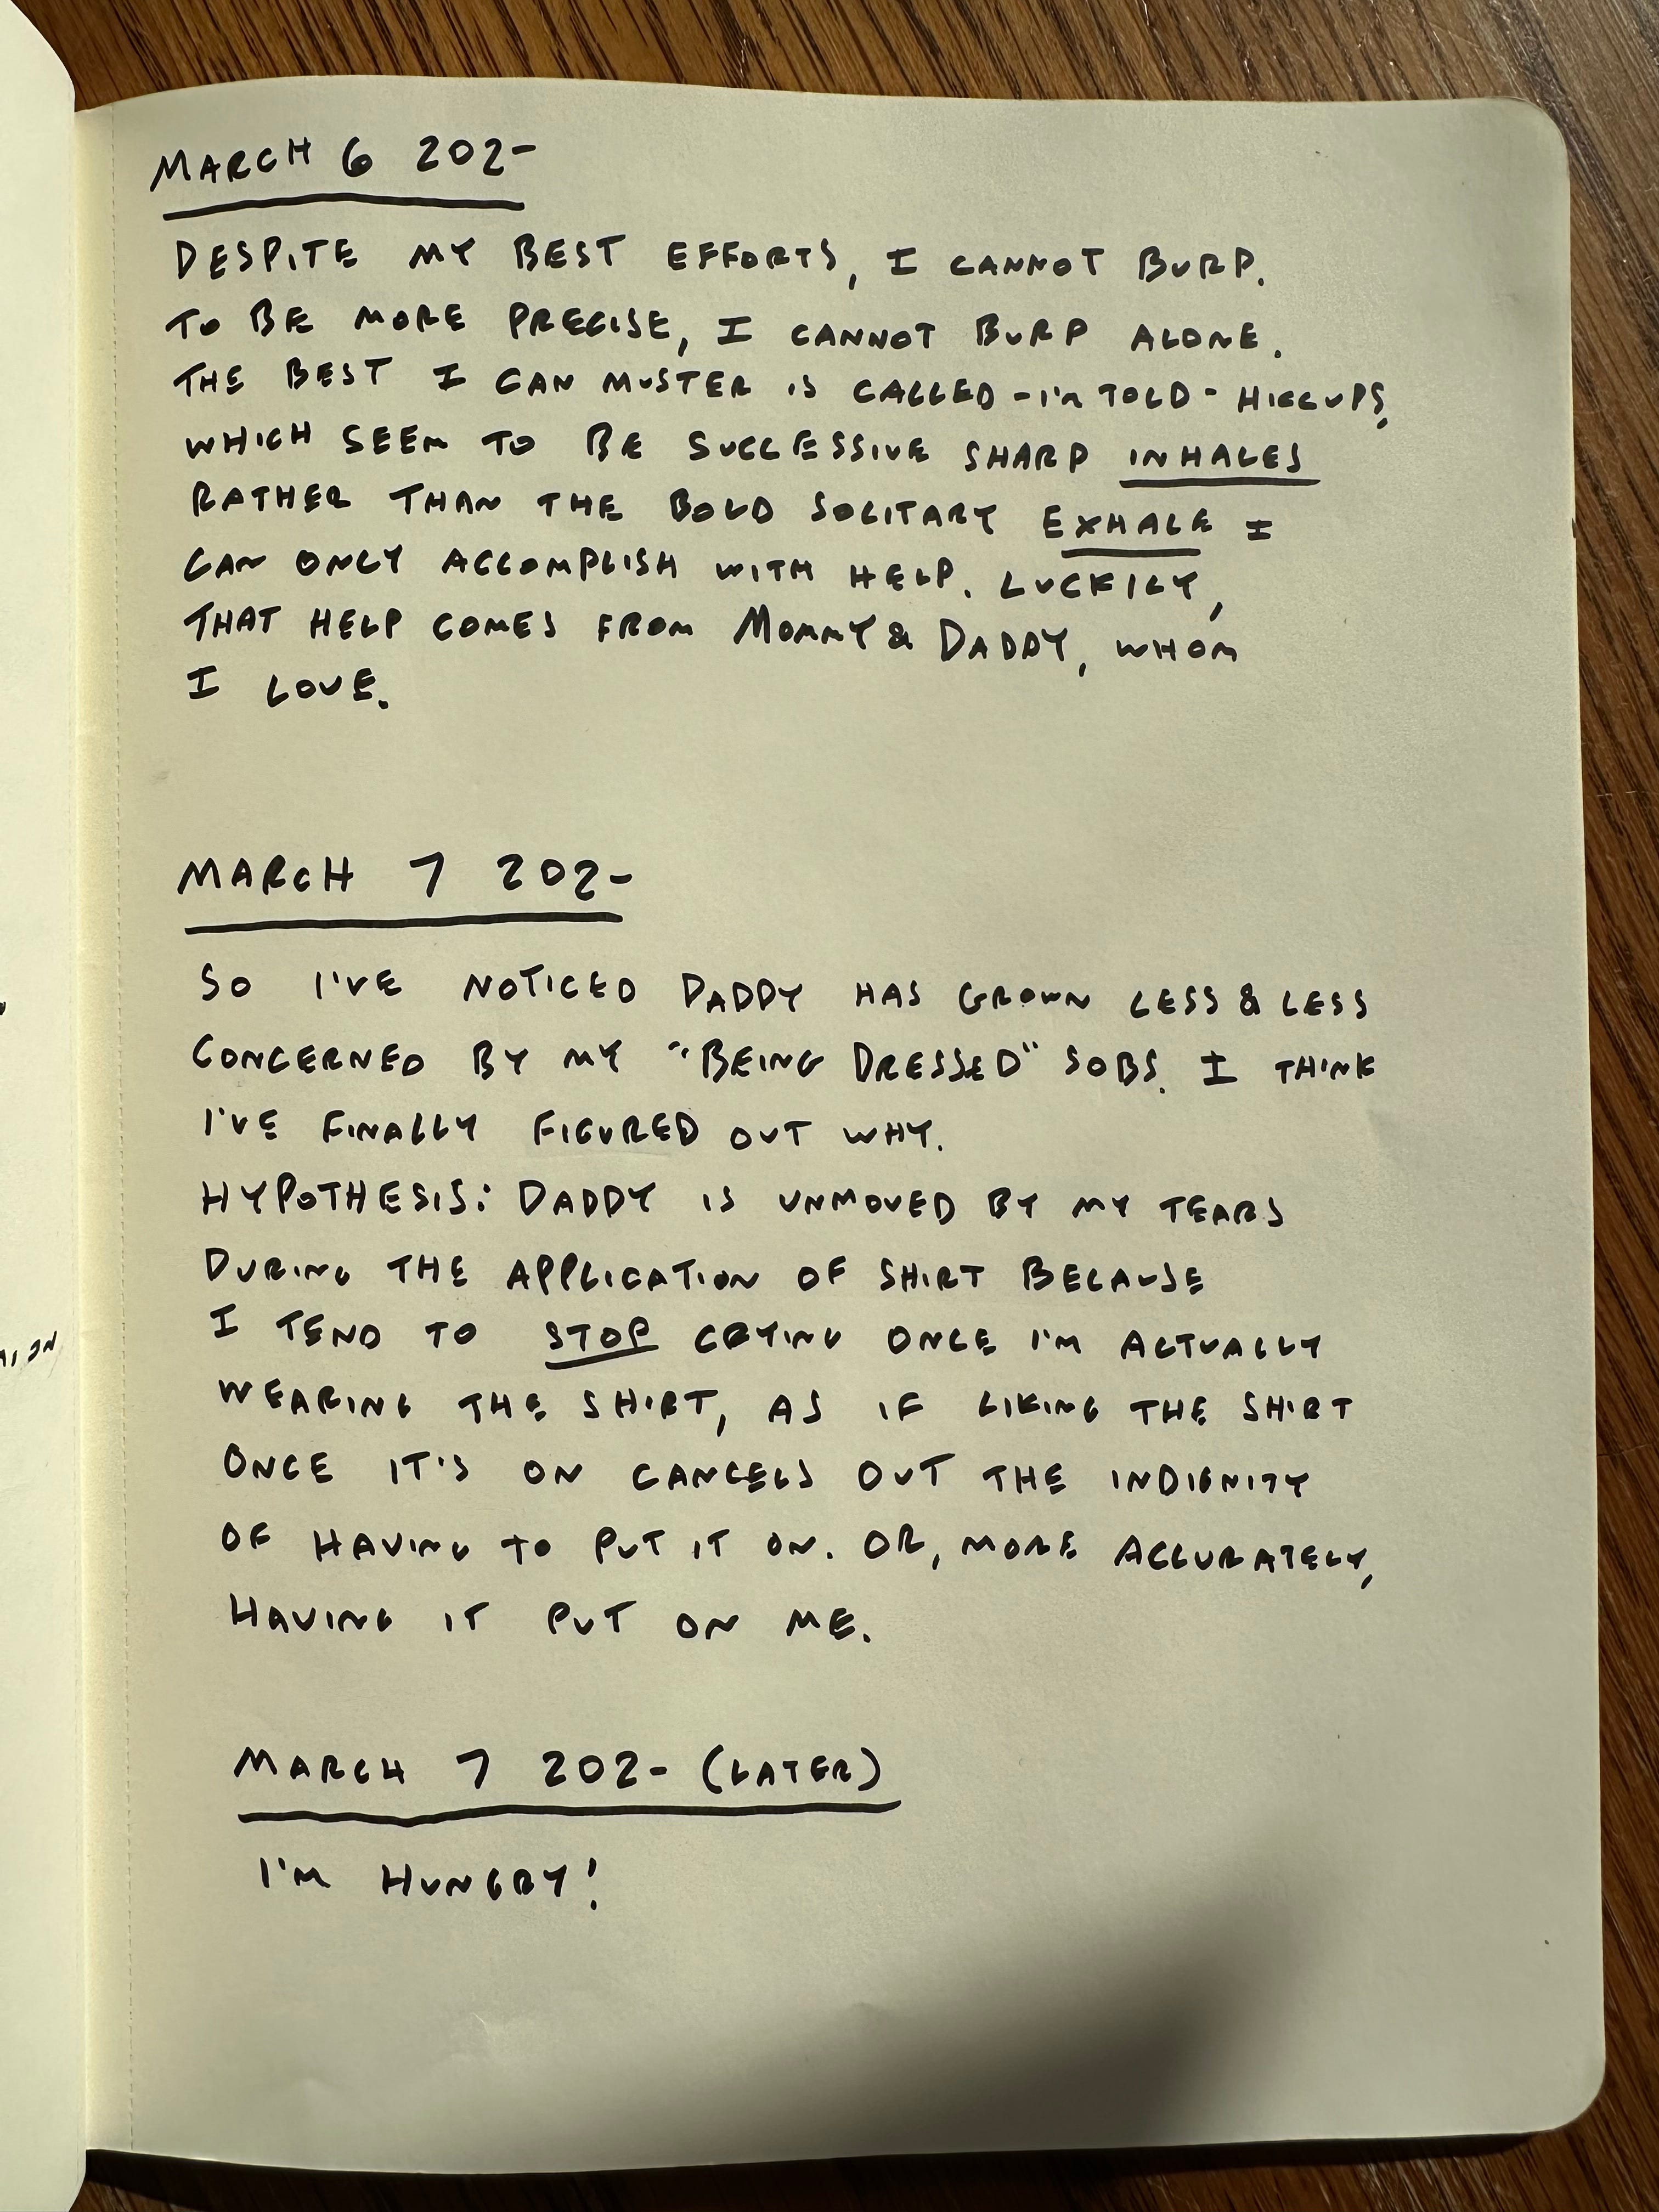 MARCH 6 202-
DESPITE MY BEST EFFORTS, I CANNOT BURP.
TO BE MORE PRECISE, I CANNOT BURP ALONE.
THE BEST I CAN MUSTER IS CALLED - I'M TOLD - HICCUPS,
WHICH SEEM TO BE SUCCESSIVE SHARP INHALES
RATHER THAN THE BOLD SOLITARY EXHALE I
CAN ONLY ACCOMPLISH WITH HELP. LUCKILY,
THAT HELP COMES FROM MOMMY & DADDY, WHOM
I LOVE.
MARCH 7 202-
SO I'VE NOTICED DADDY HAS GROWN LESS & LESS
CONCERNED BY MY "BEING DRESSED" SOBS. I THINK
I'VE FINALLY FIGURED OUT WHY.
HYPOTHESIS: DADDY IS UNMOVED BY MY TEARS
DURING THE APPLICATION OF SHIRT BECAUSE
I TEND TO STOP CRYING ONCE I'M ACTUALLY
WEARING THE SHIRT, AS IF LIKING THE SHIRT
ONCE IT'S ON CANCELS OUT THE INDIGNITY
OF HAVING TO PUT IT ON. OR, MORE ACCURATELY,
HAVING IT PUT ON ME.
MARCH 7 202- (LATER)
I'M HUNGRY!